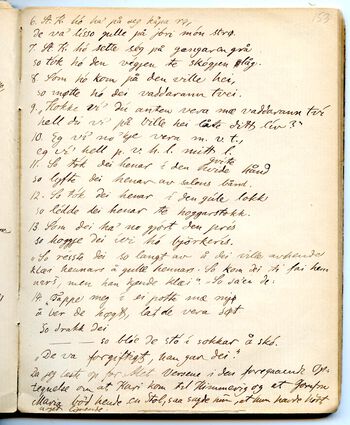 153
6. St. Ki hó ha' på seg kåpa rø,
De va' lisso gulle på jori món strø.
7. St. Ki hó sette ség på gangaren grå
so tók hó den vegjen te skógjen låg.
8. Som hó kom på den ville hei,
so møtte hó dei vaddarann tvei.
9. "Hokke vi' du anten vera mæ vaddarann tvi
hell du vi' på ville hei late ditt liv?"
10. Eg vi' no' vera m. v. t.,
eg vi' hell p. v. h. l. mitt l.
11. So tok dei henar i den kvite hånd
so lyfte dei henar av salens bånd.
12. So tok dei henar i den gule lokk
so lédde dei henar te hoggarstokk.
13. Som dei ha' no gjort den pris
so hogge dei vi hó bjørkeris.
So reiste dei so langt av å dei ville avhende
klæi hennars å gulle hennars. So kom dei ti fai hen
nars, men han kjende klæi. So sa'en de:
14. Tappe meg i ei potta mæ mjø
å ber de hogt, låd de vera søt
so drakk dei
— so blóe de stó i sokkar å skó.
"De va forgiftigt, han gav dei."
Da jeg læste op for Aslet Versene i den foregaaende Op-
tegnelse om at Kari kom til Himmerig og at Jomfru
Maria bød hende en Stol, saa sagde han, at han havde hørt